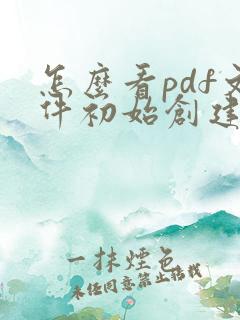 怎麽看pdf文
件初始創建
一抹煙色
未经同意禁止搭载